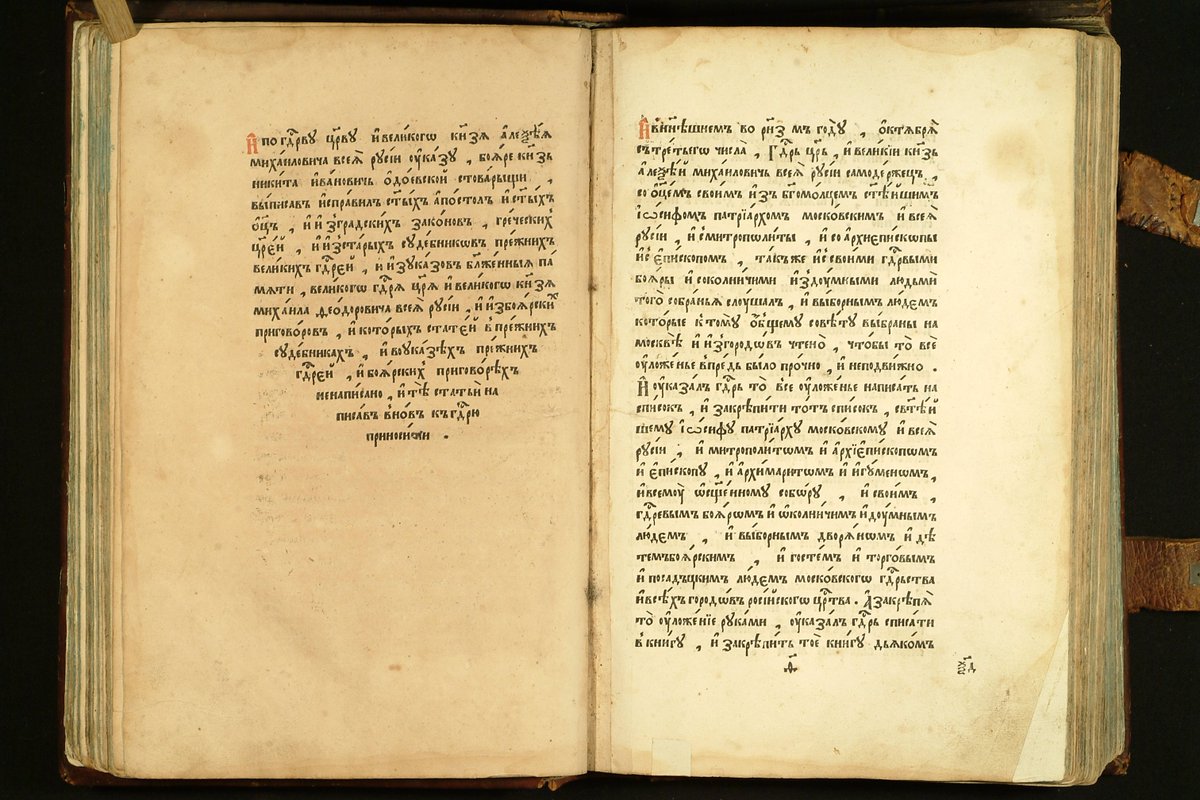 И҆ по гдⷭ҇рвꙋ цр҃вꙋ и҆ вели́когѡ кн҃зѧ а҆леѯѣ́ѧ
миха́иловича всеѧ̀ рꙋсі́и оу҆ка́зꙋ , боѧ́ре кн҃зь
ники́та и҆ва́новичь о҆до́евской стова́рыщи ,
вы́писавъ и҆спра́вилъ ст҃ы́хъ а҆по́столъ и҆ст҃ы́хъ
ѻ҆ц҃ъ , и҆ и҆з̾градскихъ зако́новъ , гре́ческихъ
цр҃е́й , и҆ и҆зста́рыхъ сꙋде́бниковъ пре́жнихъ
вели́кихъ гдⷭ҇ре́й , и҆ и҆зꙋка́зовъ бл҃же́нныѧ па́
мѧти , вели́когѡ гдⷭ҇рѧ цр҃ѧ̀ и҆ вели́когѡ кн҃зѧ
миха́ила ѳео́доровича всеѧ̀ рꙋсі́и , и҆ и҆збоѧ́рскихъ
пригово́ровъ , и҆ кото́рыхъ стате́й в̾пре́жнихъ
сꙋде́бникахъ , и҆ воука́зѣхъ пре́жнихъ
гдⷭ҇ре́й , и҆ боѧ́рскихъ пригово́рѣхъ
ненапи́сано , и҆ тѣ̀ статьѝ на
писа́въ вно́въ къ гдⷭ҇рю
приноси́ли .
И҆ вни́нѣшнемъ во рн҃з мъ годꙋ̀ , ѻ҆ктѧбрѧ̀
сътре́тьегѡ числа̀ , Гдⷭ҇рь цр҃ь , и҆ вели́кіи кн҃зь
а҆леѯѣ́й миха́иловичь всеѧ̀ рꙋсі́и самоде́ржецъ ,
со ѻ҆ц҃е́мъ свои́мъ и҆ зъ бг҃омо́лцемъ ст҃ѣ́йшимъ
і҆ѡ́сифомъ патріа́рхомъ моско́вскимъ и҆ всеѧ̀
рꙋсі́и , и҆ с̾митрополи́ты , и҆ со а҆рхіепи́скопы
и҆ с̾ є҆пи́скопомъ , та́къже и҆ с̾ свои́ми гдⷭ҇рвыми
боѧ́ры и҆ соколни́чими и҆ здꙋ́мными людьмѝ
того̀ собра́ньѧ слоу́шалъ , и҆ выборнымъ лю́демъ
кото́рые к̾томꙋ̀ о҆́бщемꙋ совѣ́тꙋ вы́браны на
москвѣ̀ и҆ и҆згородѡ́въ чтено̀ , что́бы то̀ всѐ
оу҆ложе́нье впре́дь бы́ло про́чно , и҆ неподви́жно .
И҆ оу҆каза́лъ гдⷭ҇рь то̀ все оу҆ложе́нье написа́ть на
спи́сокъ , и҆ закрѣпи́ти то́тъ спи́сокъ , свт҃ѣ́й
шемꙋ і҆ѡ́сифꙋ патріа́рхꙋ моско́вскомꙋ и҆ всеѧ̀
рꙋсі́и , и҆ митрополи́томъ и҆ а҆рхіепи́скопомъ
и҆ є҆пи́скопꙋ , и҆ а҆рхимари́томъ и҆ и҆гꙋ́меномъ ,
и҆ всемоу̀ ѡ҆сщ҃е́нномꙋ собо́рꙋ , и҆ свои́мъ ,
гдⷭ҇ревымъ боѧ́рѡмъ и҆ ѡ҆колни́чимъ и҆ доу́мнымъ
лю́демъ , и҆ вы́борнымъ дворѧ́номъ и҆ дѣ
темъ боѧ́рскимъ , и҆ госте́мъ и҆ торго́вымъ
и҆ поса́дъцкимъ лю́демъ моско́вскогѡ гдⷭ҇рьства
и҆ всѣ́хъ городѡ́въ росі́йскогѡ црⷭ҇тва . А҆ закрѣпѧ̀
то̀ оу҆ложе́ніе рꙋка́ми , оу҆каза́лъ гдⷭ҇рь списа́ти
в̾ кни́гꙋ , и҆ закрѣпи́ть тоѐ кни́гꙋ дьѧ́комъ